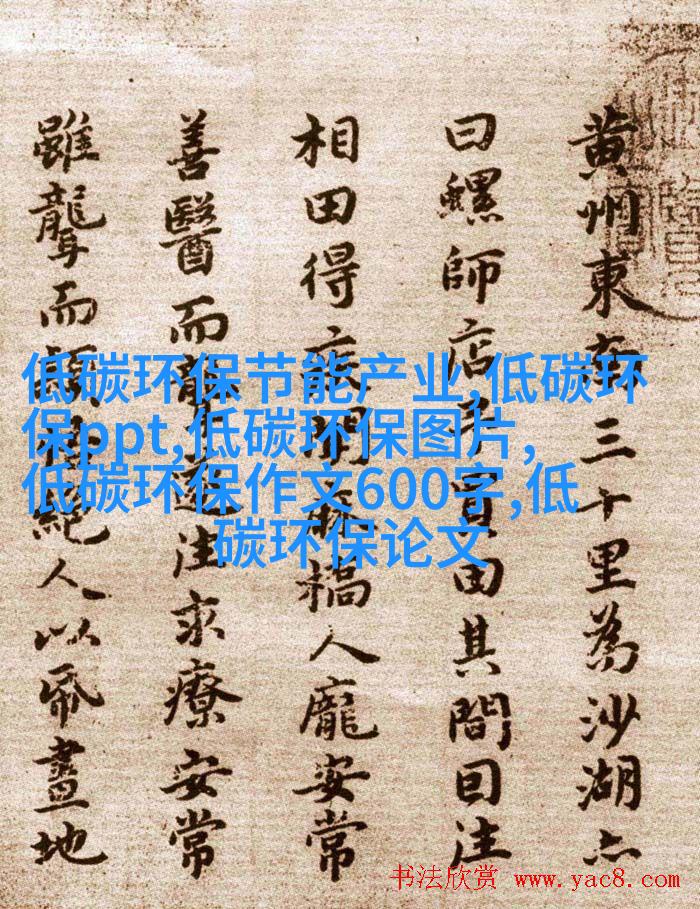 黄州東南三十里為沙湖亦
曰螺師店予買田其間因往
相田得疾聞麻橋人龐安常
善醫而聾遂往求療安常
雖聾而穎絕人以帋畫地
低碳环保节能产业,低碳环
保ppt,低碳环保图片,
低碳环保作文600字,低
碳环保论文
书法欣赏 www.yac8.com